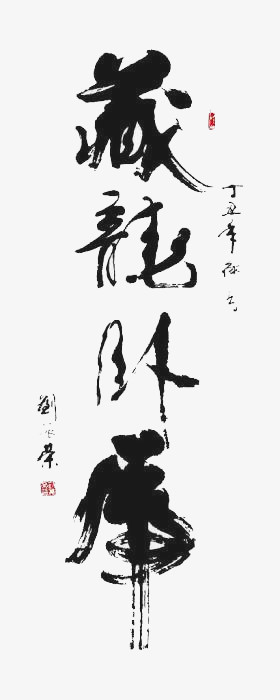 藏龍臥虎
丁丑年秋书
劉
榮